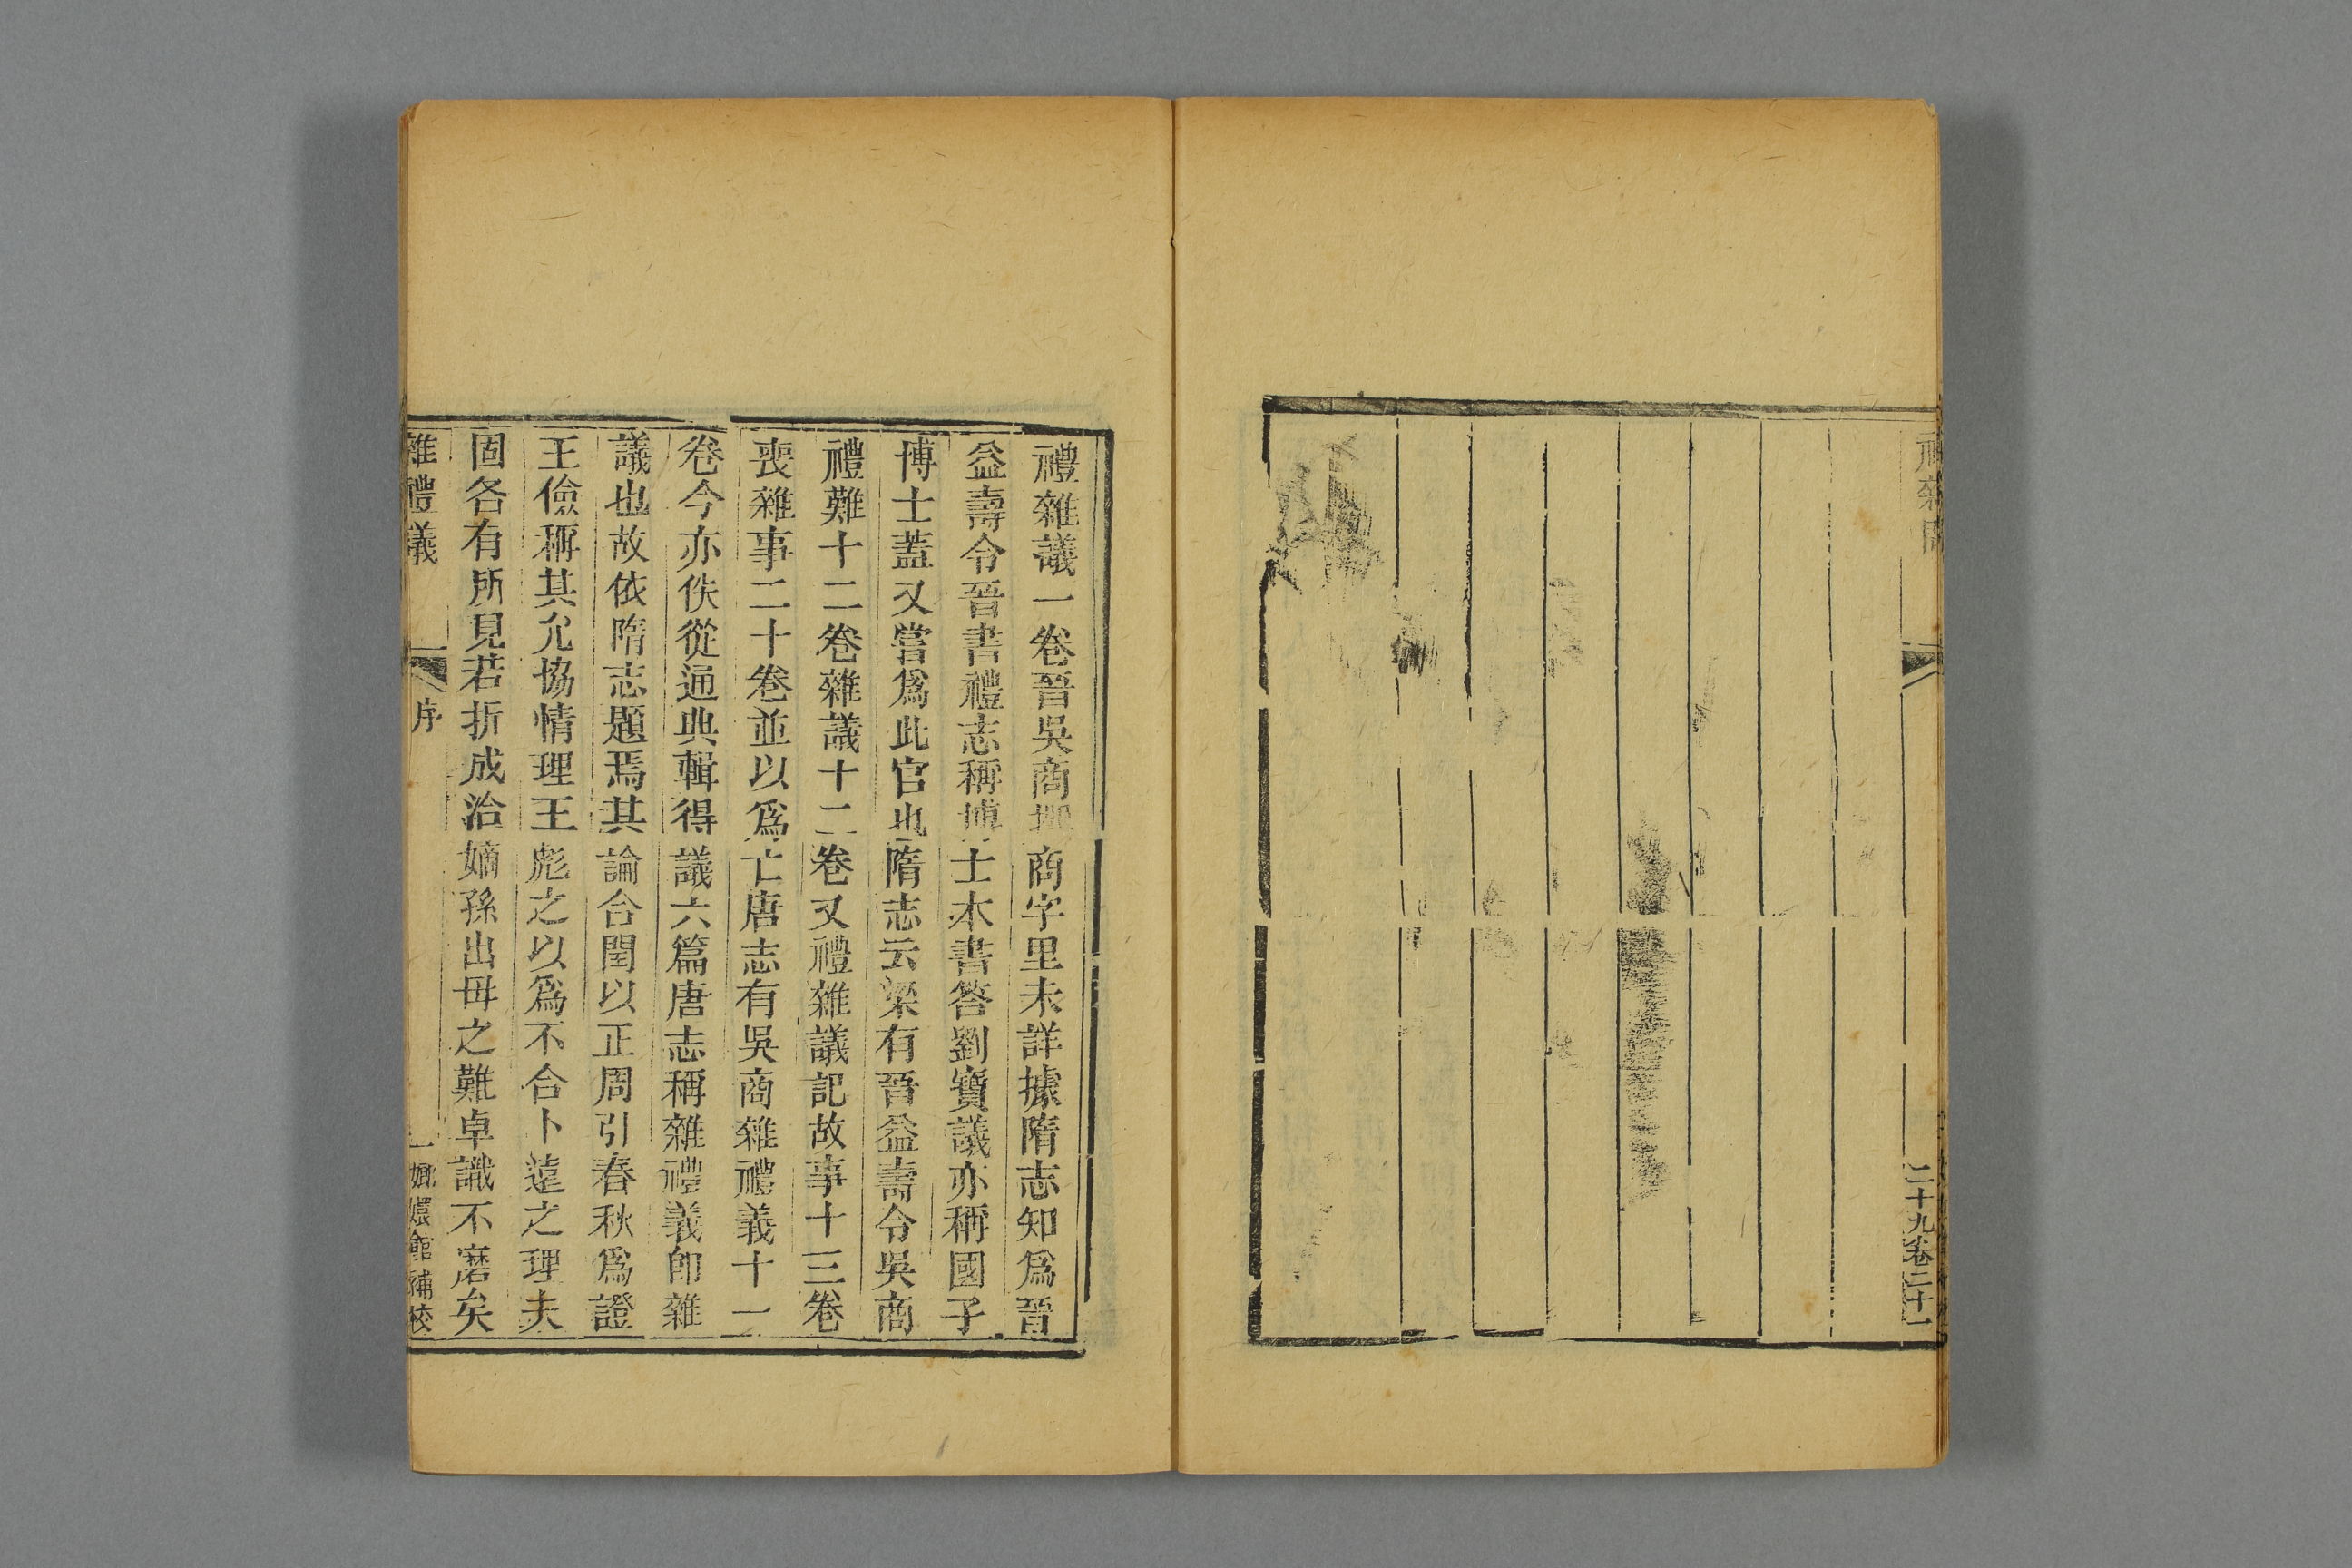 二十九卷二十一
禮雜議一卷晉吳商撰商字里未詳據隋志知爲晉
益壽令晉書禮志稱博士本書答劉寶議亦稱國子
博士蓋又嘗爲此官也隋志云梁有晉益壽令吳商
禮難十二卷雜議十二卷又禮雜議記故事十三卷
喪雜事二十卷並以爲亡唐志有吳商雜禮義十一
卷今亦佚從通典輯得議六篇唐志稱雜禮義卽雜
議也故依隋志題焉其論合閏以正周引春秋爲證
王儉稱其允協情理王彪之以爲不合卜遠之理夫
固各有所見若折成洽嫡孫出母之難卓識不磨矣
雜禮議
序
一嫏嬛館補校